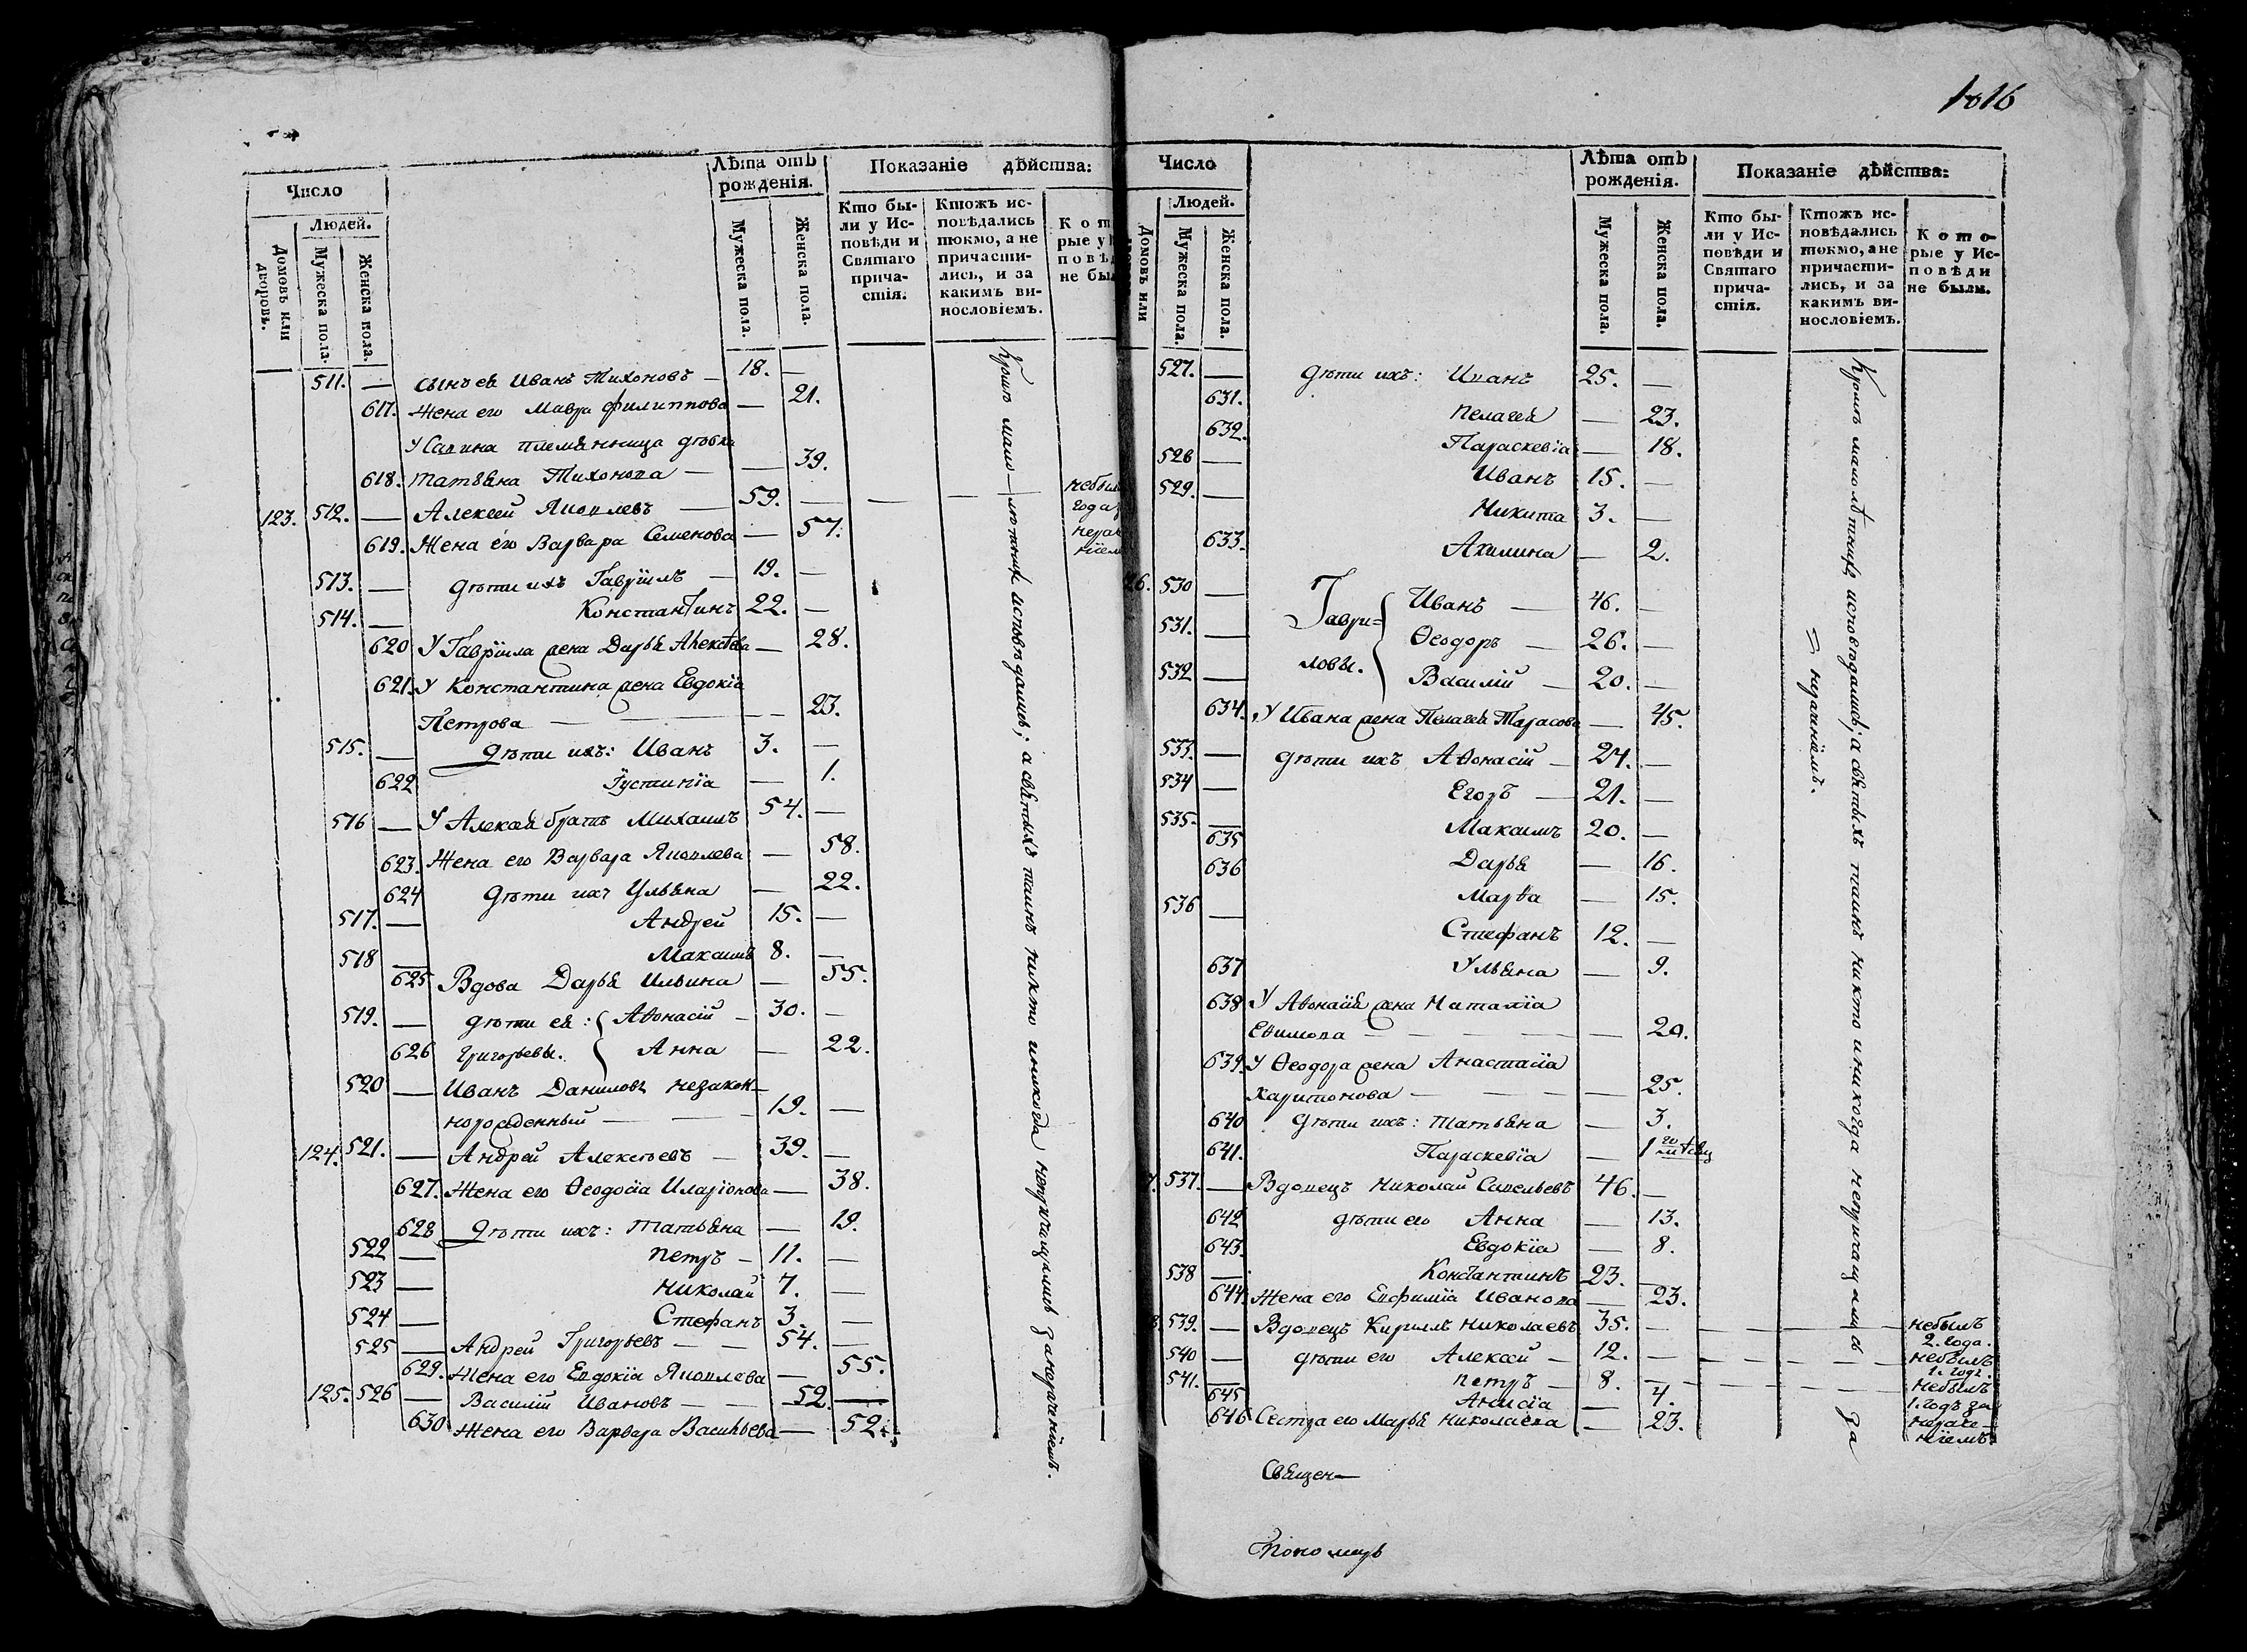 1016
Число
Людей.
Домовъ или дворовъ.
Мужеска пола.
Женска пола.
Лѣта отъ рожденія.
Мужеска пола.
Женска пола.
Показаніе дѣйства:
Кто бы-
ли у Ис-
повѣди и
Святаго
прича-
стія.
Ктожъ ис-
повѣдались
токмо, а не
причасти-
лись, и за
какимъ ви-
нословіемъ.
К о т
рые у
п о в ѣ
не бы
511. — сынъ ея Иванъ Тихоновъ — 18. —
617. Жена его Мавра Филиппова — 21.
У Савина племянница дѣвка
618. Татьяна Тихонова — — 39.
123. 512. — Алексей Яковлевъ — 59. —
619. Жена его Варвара Семенова — 57.
513. — дѣти ихъ Гавріилъ — 19. —
514. — Константинъ 22. —
620 У Гавріила жена Дарья Алексѣева — 28.
621. У Константина жена Евдокія
Петрова — — — 23.
515. — дѣти ихъ: Иванъ 3. —
622 Густинія — 1.
516 — У Алексея братъ Михаилъ 54. —
623. Жена его Варвара Яковлева — 58.
624 дѣти ихъ Ульяна — 22.
517. — Андрей 15. —
518 — Максимъ 8. —
625 Вдова Дарья Ильина — 55.
519. — дѣти ея: Аѳонасій — 30. —
626 Григорьевы. Анна — 22.
520 — Иванъ Даниловъ незакон-
норожденный — 19. —
124. 521. — Андрей Алексѣевъ — 39. —
627. Жена его Ѳеодосія Иларіонова — 38.
628 дѣти ихъ: Татьяна — 19.
522 — Петръ — 11. —
523 — Николай 7. —
524 — Стефанъ 3. —
525 — Андрей Григорьевъ — — 54. —
629. Жена его Евдокія Яковлева — 55.
125. 526 — Василій Ивановъ — — 52. —
630 Жена его Варвара Васильева — 52.
Кромѣ мало-лѣтнихъ исповѣдались; а святыхъ таинъ никто и никогда непричащались за нераченіемъ.
Число
Людей.
Домовъ или
Мужеска пола.
Женска пола.
Лѣта отъ рожденія.
Мужеска пола.
Женска пола.
Показаніе дѣйства:
Кто бы-
ли у Ис-
повѣди и
Святаго
прича-
стія.
Ктожъ ис-
повѣдались
токмо, а не
причасти-
лись, и за
какимъ ви-
нословіемъ.
К о т о-
рые у Ис-
п о в ѣ д и
не были.
527. — дѣти ихъ: Иванъ 25. —
631. Пелагея — 23.
632. Параскевіа — 18.
528 — Иванъ 15. —
529. — Никита 3. —
633. Акилина — 2.
26. 530 — Гаври= Иванъ — 46. —
531. — Ѳеодоръ — 26. —
532 — ловы. Василій — 20. —
634. У Ивана жена Пелагея Тарасова — 45.
533. — дѣти ихъ Аѳонасій — 24. —
534 — Егоръ — 21. —
535. — Максимъ 20. —
635 Дарья — 16.
636 Марѳа — 15.
536 — Стефанъ 12. —
637 Ульяна — 9.
638 У Аѳонасія жена Наталіа
Еѳимова — — — 20.
639. У Ѳеодора жена Анастасіа
Харитонова — — — 25.
640 дѣти ихъ: Татьяна — 3.
641. Параскевіа — 1
537. — Вдовецъ Николай Савельевъ 46. —
642 дѣти его Анна — 13.
643. Евдокіа — 8.
538 — Константинъ 23. —
644. Жена его Евфиміа Иванова — 23.
539. — Вдовецъ Кириллъ Николаевъ 35. — небылъ
2. года.
540 — дѣти его Алексей — 12. — небылъ
1. годъ.
541. — Петръ — 8. — небылъ
1. годъ за
645 Анисіа — 4.
646 Сестра его Марья Николаева — 23. нераче-
ніемъ.
Кромѣ малолѣтнихъ исповѣдались; а святыхъ таинъ никто и никогда непричащались за
= нераченіемъ.
Священ—
Пономарь